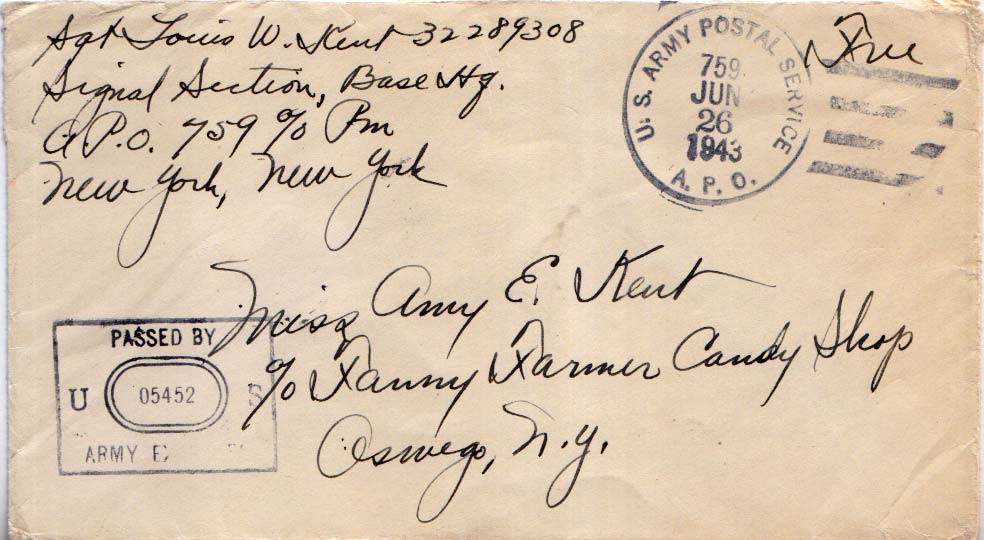 Sgt Louis W. Kent 32289308
Signal Section, Base Hq.
A.P.O. 759 % Pm
New York, New York
U. S. ARMY POSTAL SERVICE
759
JUN
26
1943
A. P. O.
Free
Miss Amy E. Kent
% Fanny Farmer Candy Shop
Oswego, N.Y.
PASSED BY
U 05452 S
ARMY E